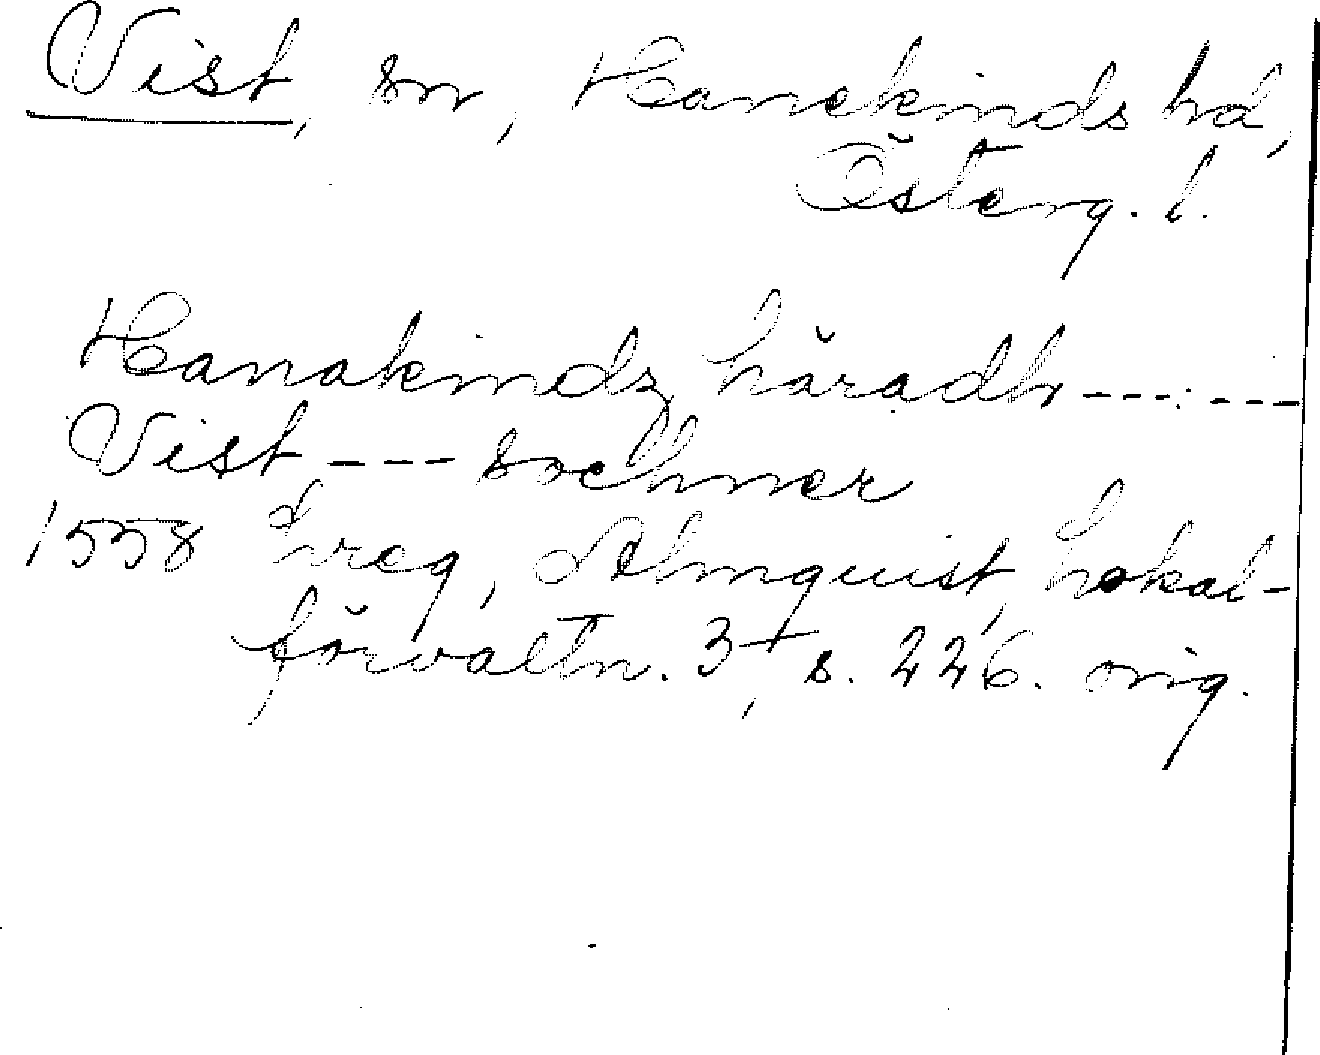 Vist, sn, Hanekinds hd,
Österg. l.
Hanakindz häradh ---:---
Vist --- sochner
1558 Lreg, Almquist, Lokal-
förvaltn. 3, s. 226. orig.